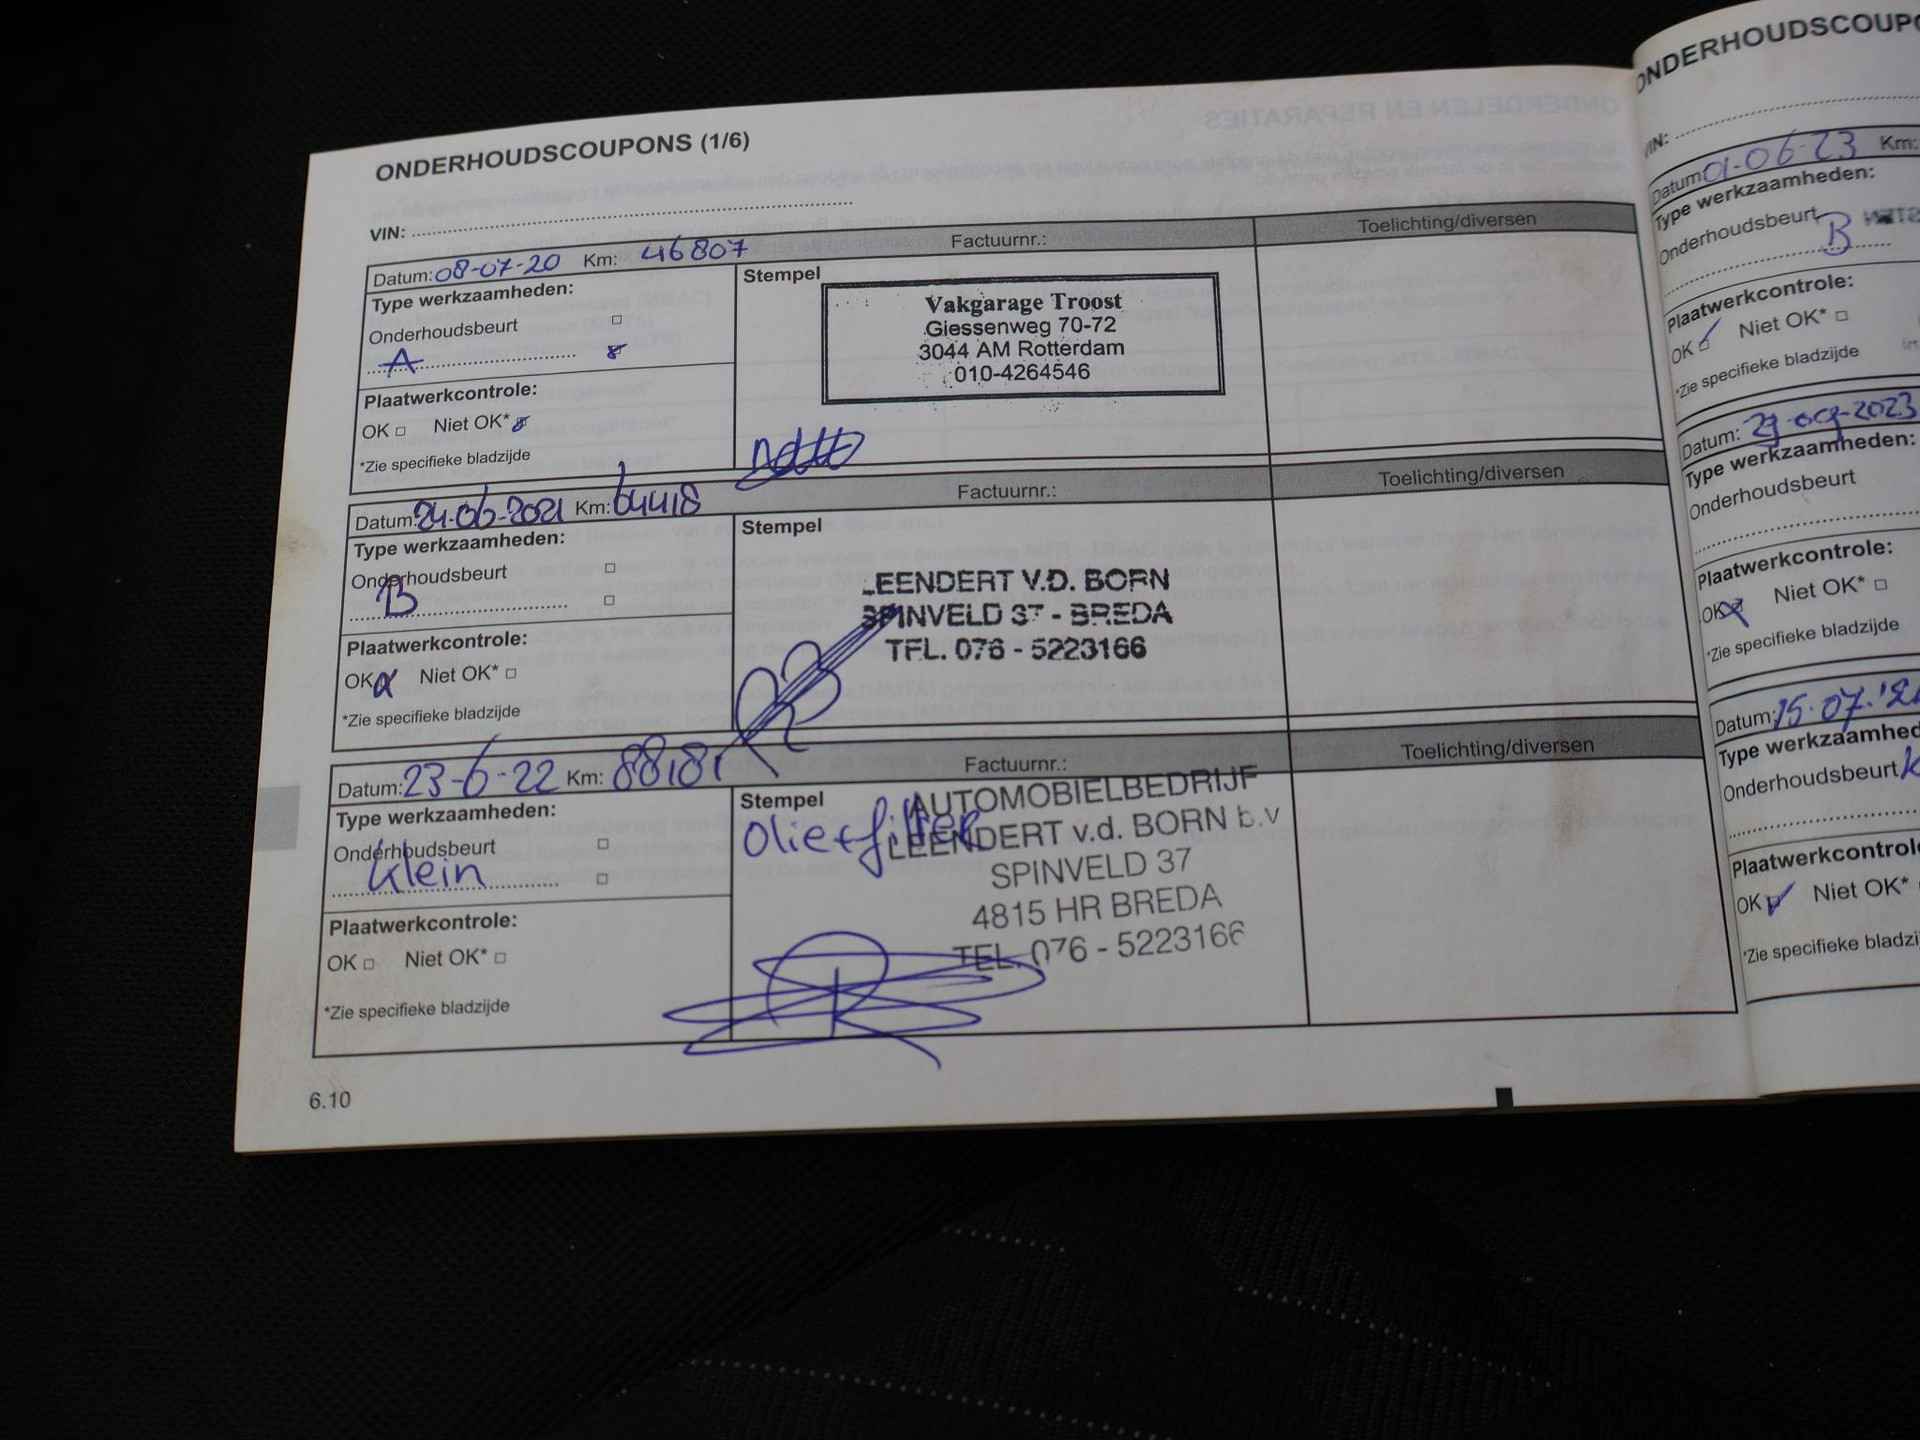 ONDERHOUDSCOUPONS (1/6)
VIN:
Datum: 08-07-20 Km: 46807 Factuurnr.: Toelichting/diversen
Type werkzaamheden:
Onderhoudsbeurt
A
Plaatwerkcontrole:
OK Niet OK*
*Zie specifieke bladzijde
Stempel
Vakgarage Troost
Giessenweg 70-72
3044 AM Rotterdam
010-4264546
Datum: 24-06-2021 Km: 64418 Factuurnr.: Toelichting/diversen
Type werkzaamheden:
Onderhoudsbeurt
B
Plaatwerkcontrole:
OK Niet OK*
*Zie specifieke bladzijde
Stempel
LEENDERT V.D. BORN
SPINVELD 37 - BREDA
TEL. 076 - 5223166
Datum: 23-6-22 Km: Factuurnr.: Toelichting/diversen
Type werkzaamheden:
Onderhoudsbeurt
klein
Plaatwerkcontrole:
OK Niet OK*
*Zie specifieke bladzijde
Stempel
Olie+filter
AUTOMOBIELBEDRIJF
LEENDERT v.d. BORN b.v
SPINVELD 37
4815 HR BREDA
TEL. 076 - 5223166
6.10
ONDERHOUDSCOUPO
VIN:
Datum: 01-06-23 Km:
Type werkzaamheden:
Onderhoudsbeurt
B
Plaatwerkcontrole:
OK Niet OK*
*Zie specifieke bladzijde
Datum:
Type werkzaamheden:
Onderhoudsbeurt
Plaatwerkcontrole:
OK Niet OK*
*Zie specifieke bladzijde
Datum: 15-07-'2
Type werkzaamhed
Onderhoudsbeurt
Plaatwerkcontrol
OK Niet OK*
*Zie specifieke bladzi